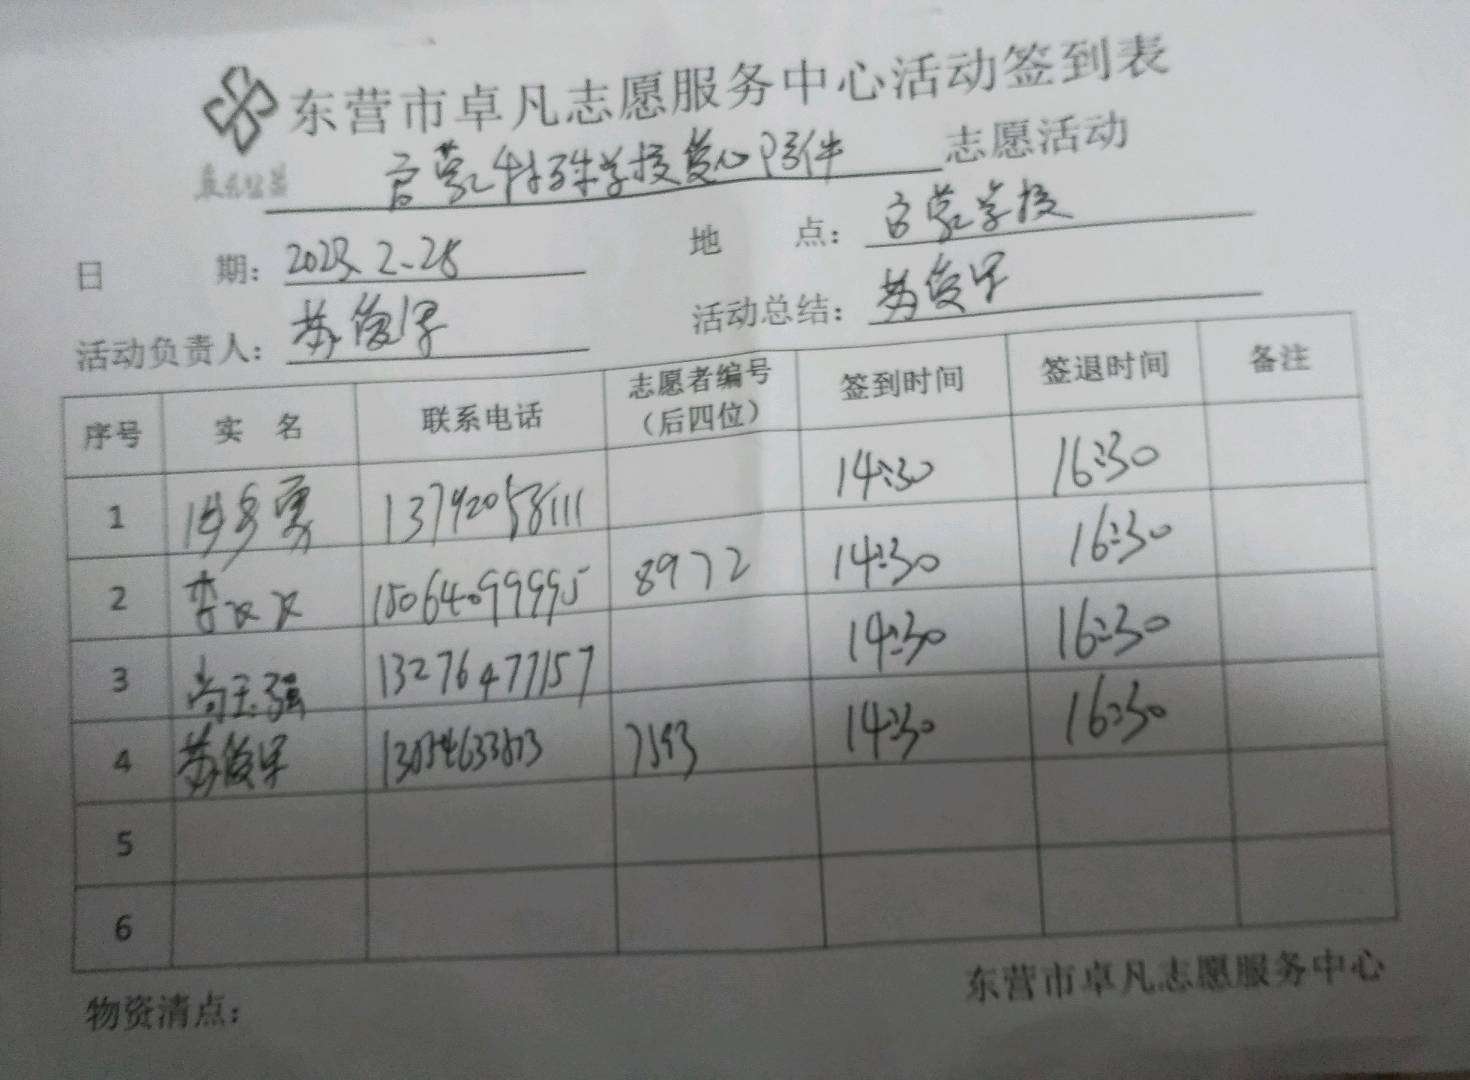 东营市卓凡志愿服务中心活动签到表
启蒙特殊学校爱心陪伴 志愿活动
日 期： 2023.2.28 地 点： 启蒙学校
活动负责人： 苏俊 活动总结： 苏俊
序号 实 名 联系电话 志愿者编号（后四位） 签到时间 签退时间 备注
1 13792058111 14:30 16:30
2 李 15064099995 8972 14:30 16:30
3 尚玉强 13276477157 14:30 16:30
4 苏俊 7593 14:30 16:30
5
6
物资清点： 东营市卓凡志愿服务中心